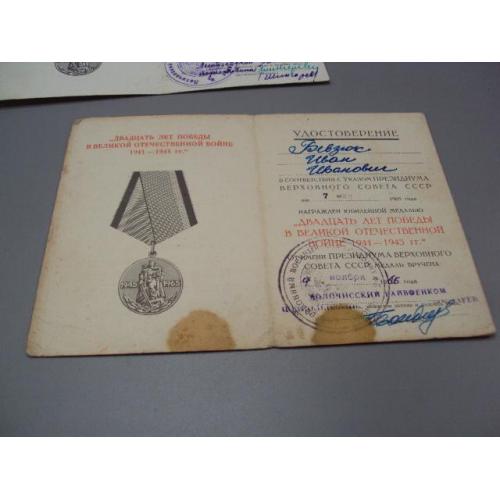 „ДВАДЦАТЬ ЛЕТ ПОБЕДЫ
В ВЕЛИКОЙ ОТЕЧЕСТВЕННОЙ ВОЙНЕ
1941—1945 гг."
1945 1965
УДОСТОВЕРЕНИЕ
Иван
Иванович
В СООТВЕТСТВИИ С УКАЗОМ ПРЕЗИДИУМА
ВЕРХОВНОГО СОВЕТА СССР
от 7 мая 1965 года
НАГРАЖДЕН ЮБИЛЕЙНОЙ МЕДАЛЬЮ
„ДВАДЦАТЬ ЛЕТ ПОБЕДЫ
В ВЕЛИКОЙ ОТЕЧЕСТВЕННОЙ
ВОЙНЕ 1941—1945 гг."
ОТ ИМЕНИ ПРЕЗИДИУМА ВЕРХОВНОГО
СОВЕТА СССР МЕДАЛЬ ВРУЧЕНА
ноября 1966 года
ВОЛОЧИССКИЙ РАЙВОЕНКОМ